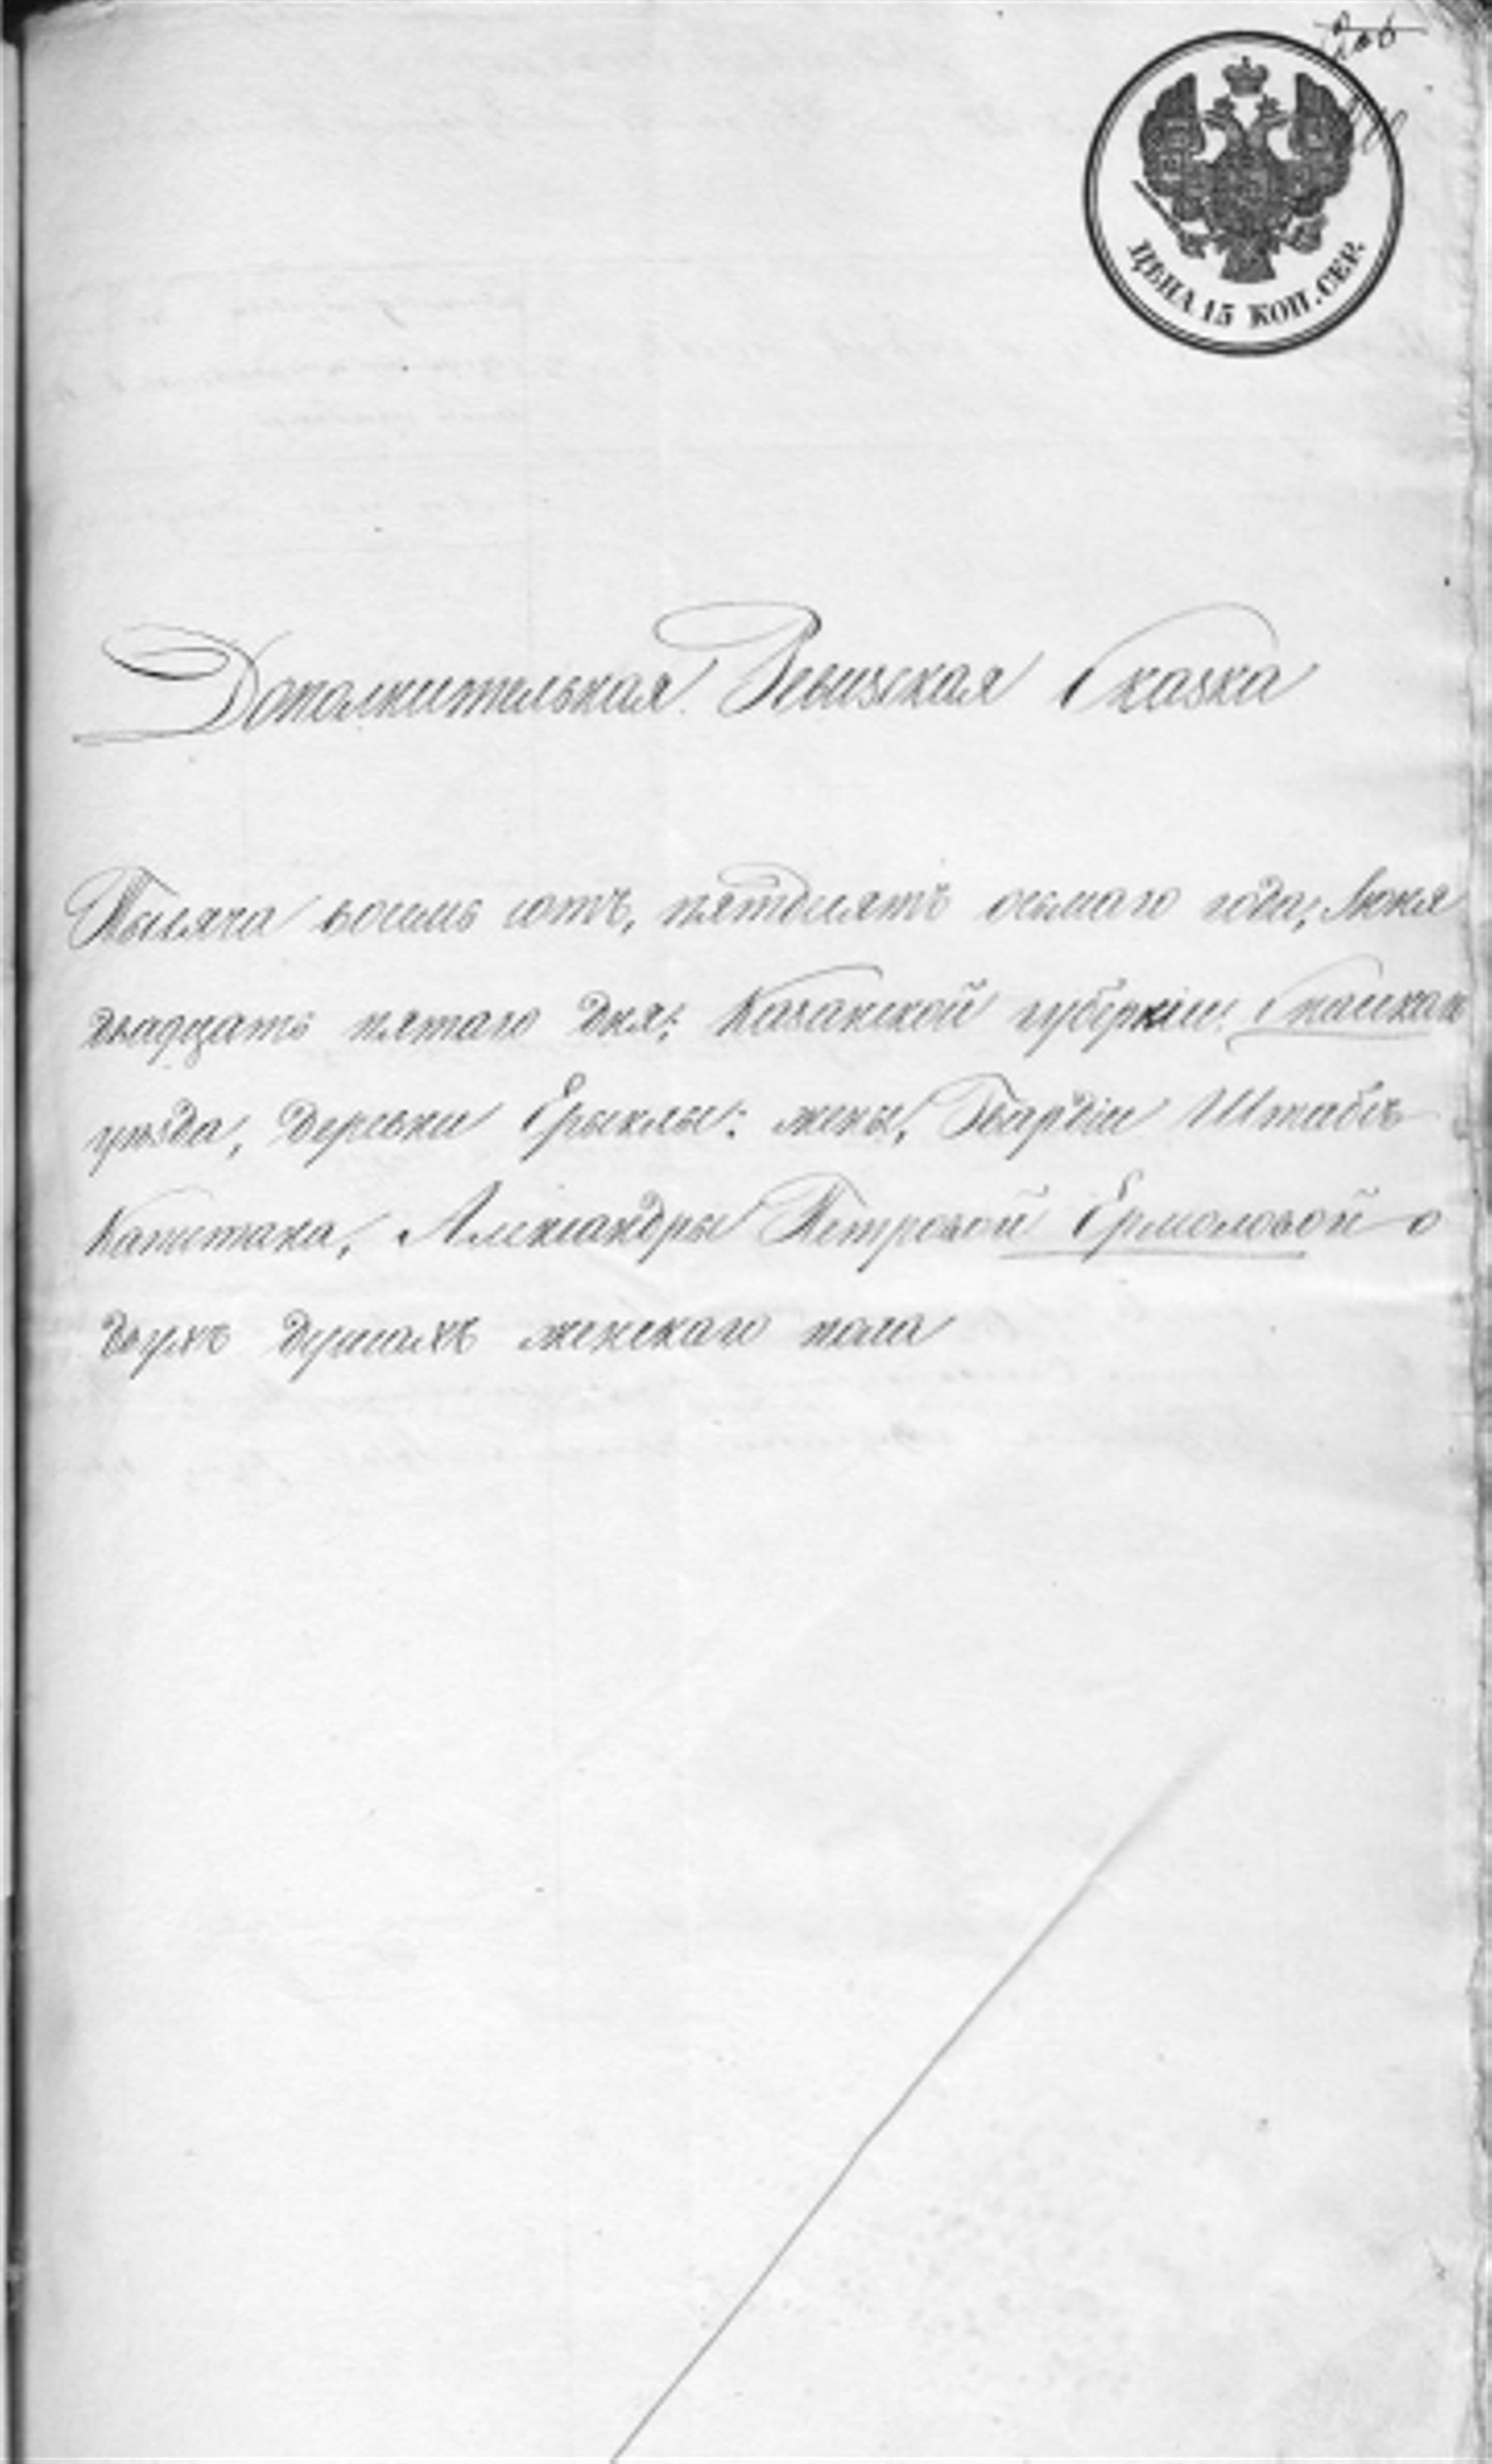 ЦѢНА 15 КОП. СЕР.
Дополнительная Ревизская Сказка
Тысяча восемь сотъ, пятдесятъ осьмаго года, Іюня
двадцать пятаго дня; Казанской губерніи Спаскаго
уѣзда, деревни Ерыклы: жены, Гвардіи Штабсъ
Капитана, Александры Петровой Ермоловой о
двухъ душахъ женскаго пола